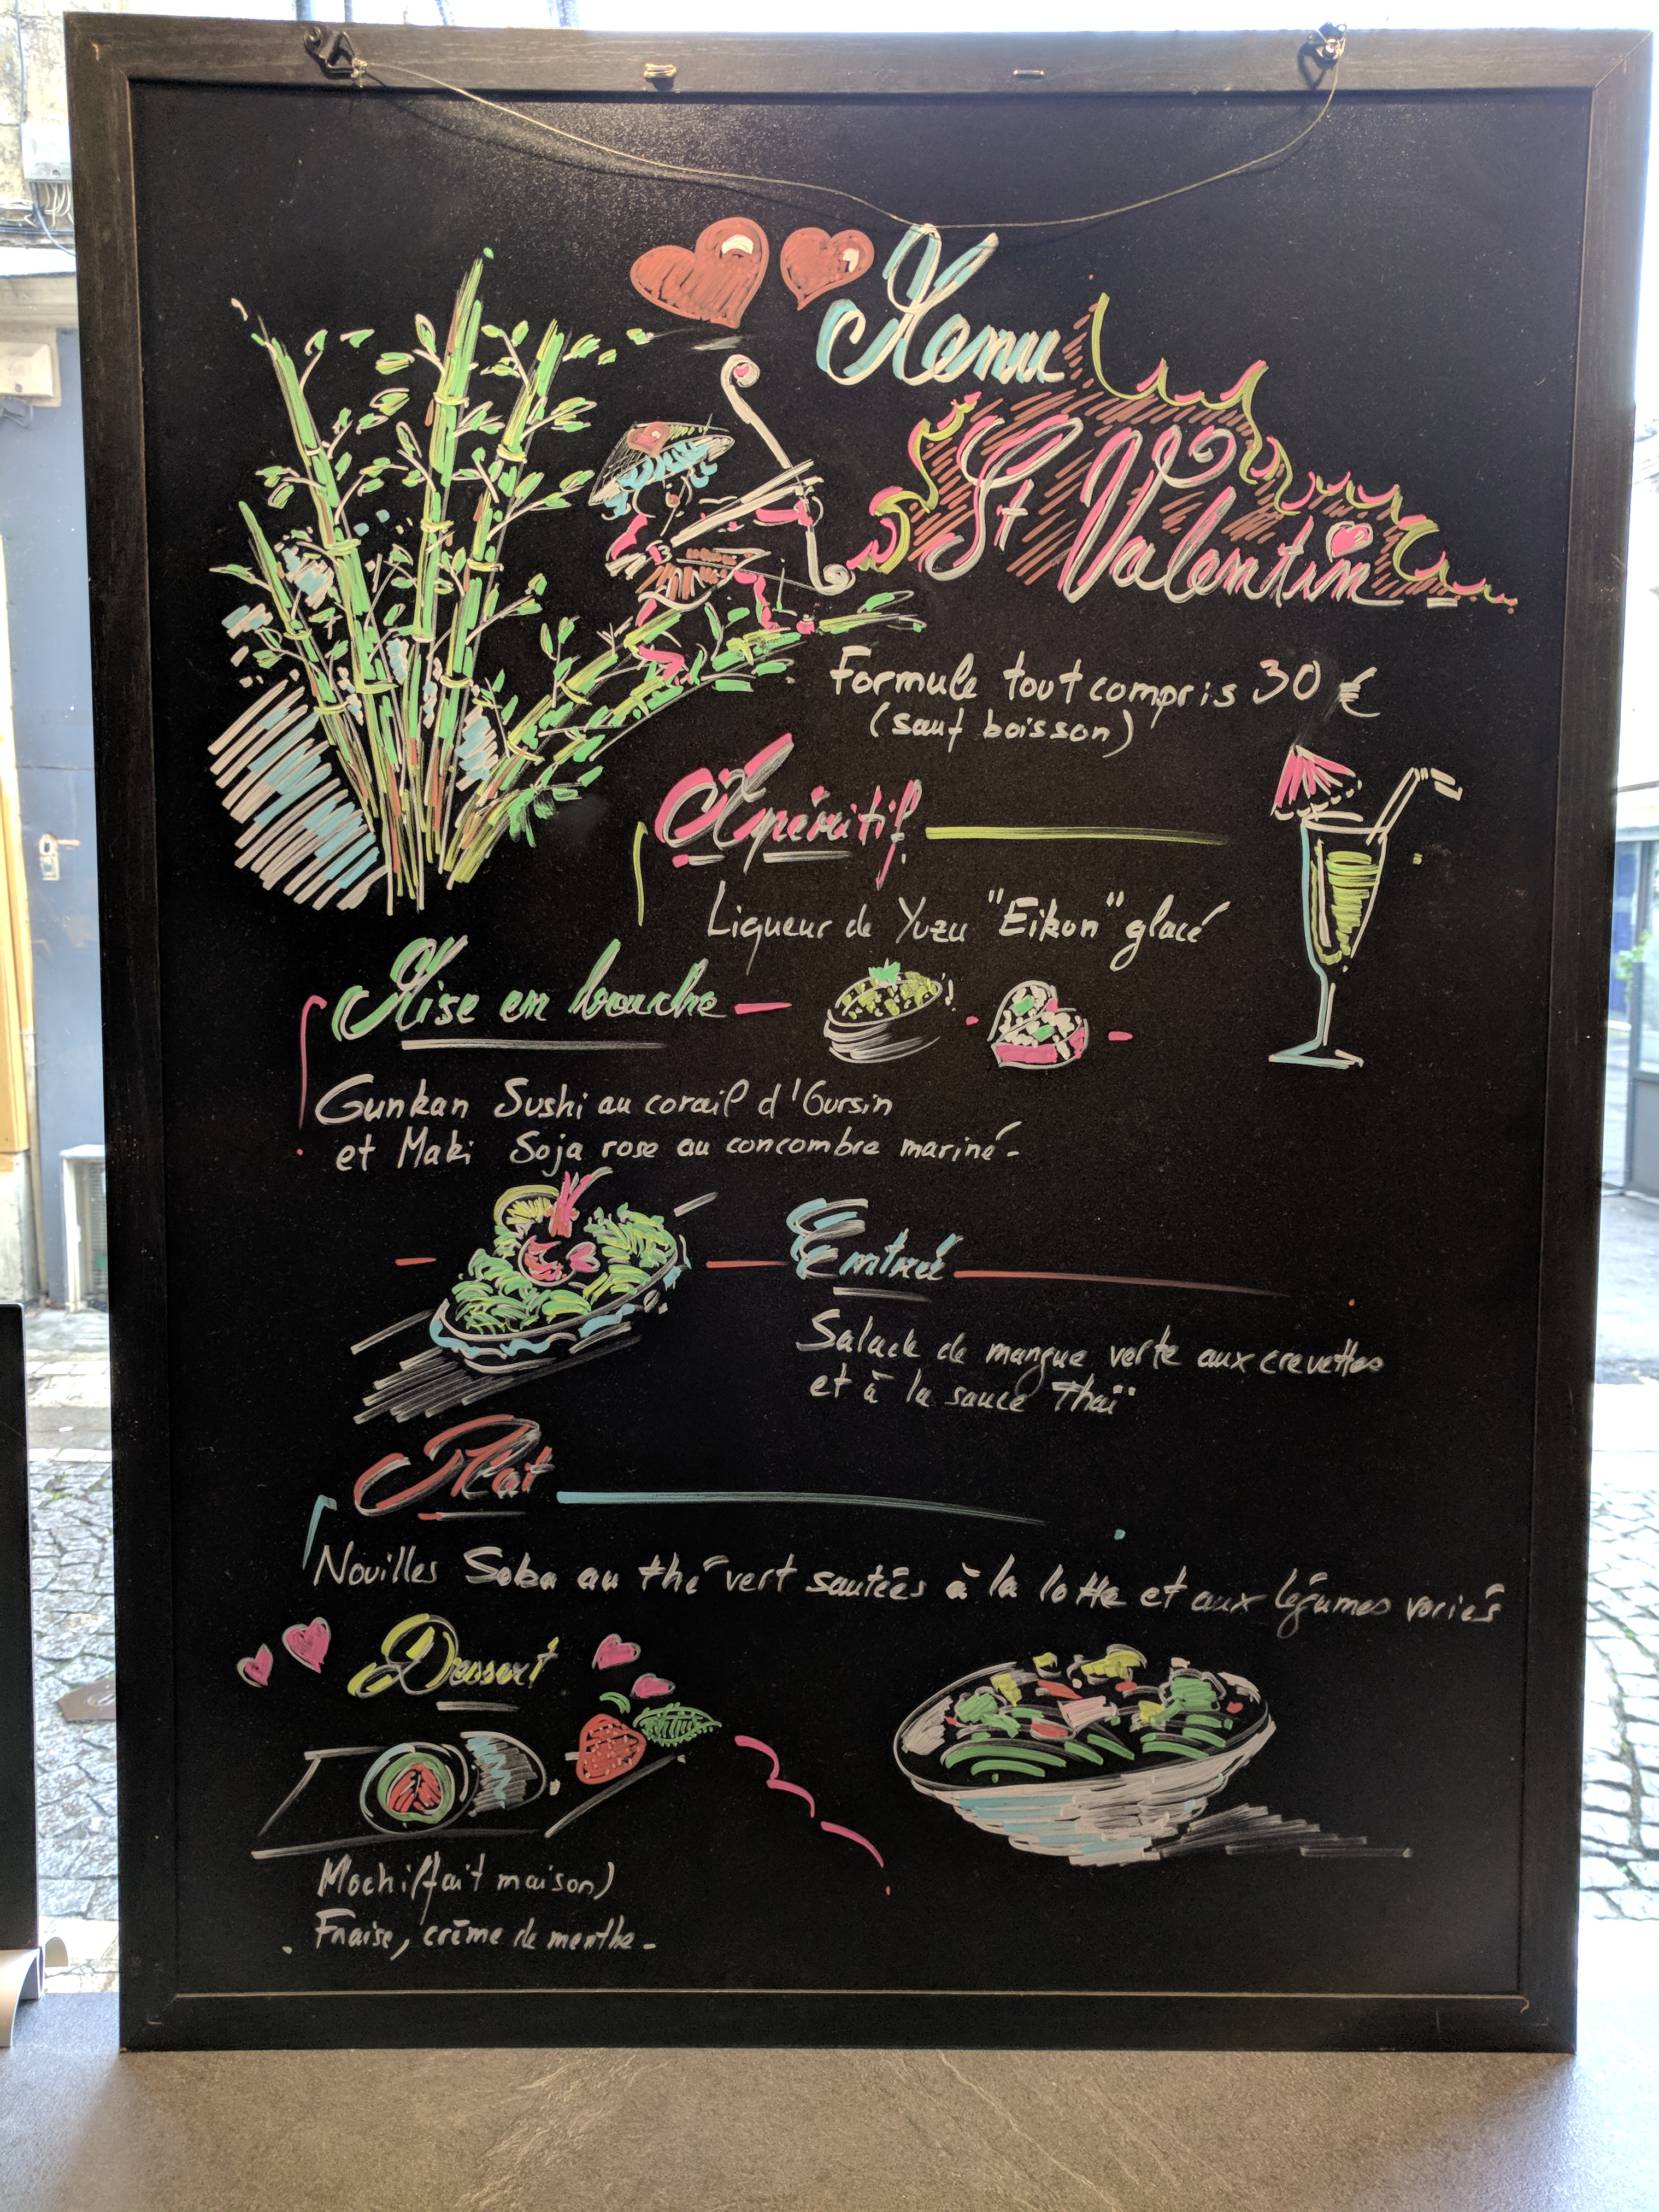 Menu
St Valentin
Formule tout compris 30 €
(sauf boisson)
Apéritif
Liqueur de Yuzu "Eikun" glacé
Mise en bouche
Gunkan Sushi au corail d'Oursin
et Maki Soja rose au concombre mariné-
Entrée
Salade de mangue verte aux crevettes
et à la sauce Thaï
Plat
Nouilles Soba au thé vert sautées à la lotte et aux légumes variés
Dessert
Mochi (fait maison)
Fraise, crème de menthe-